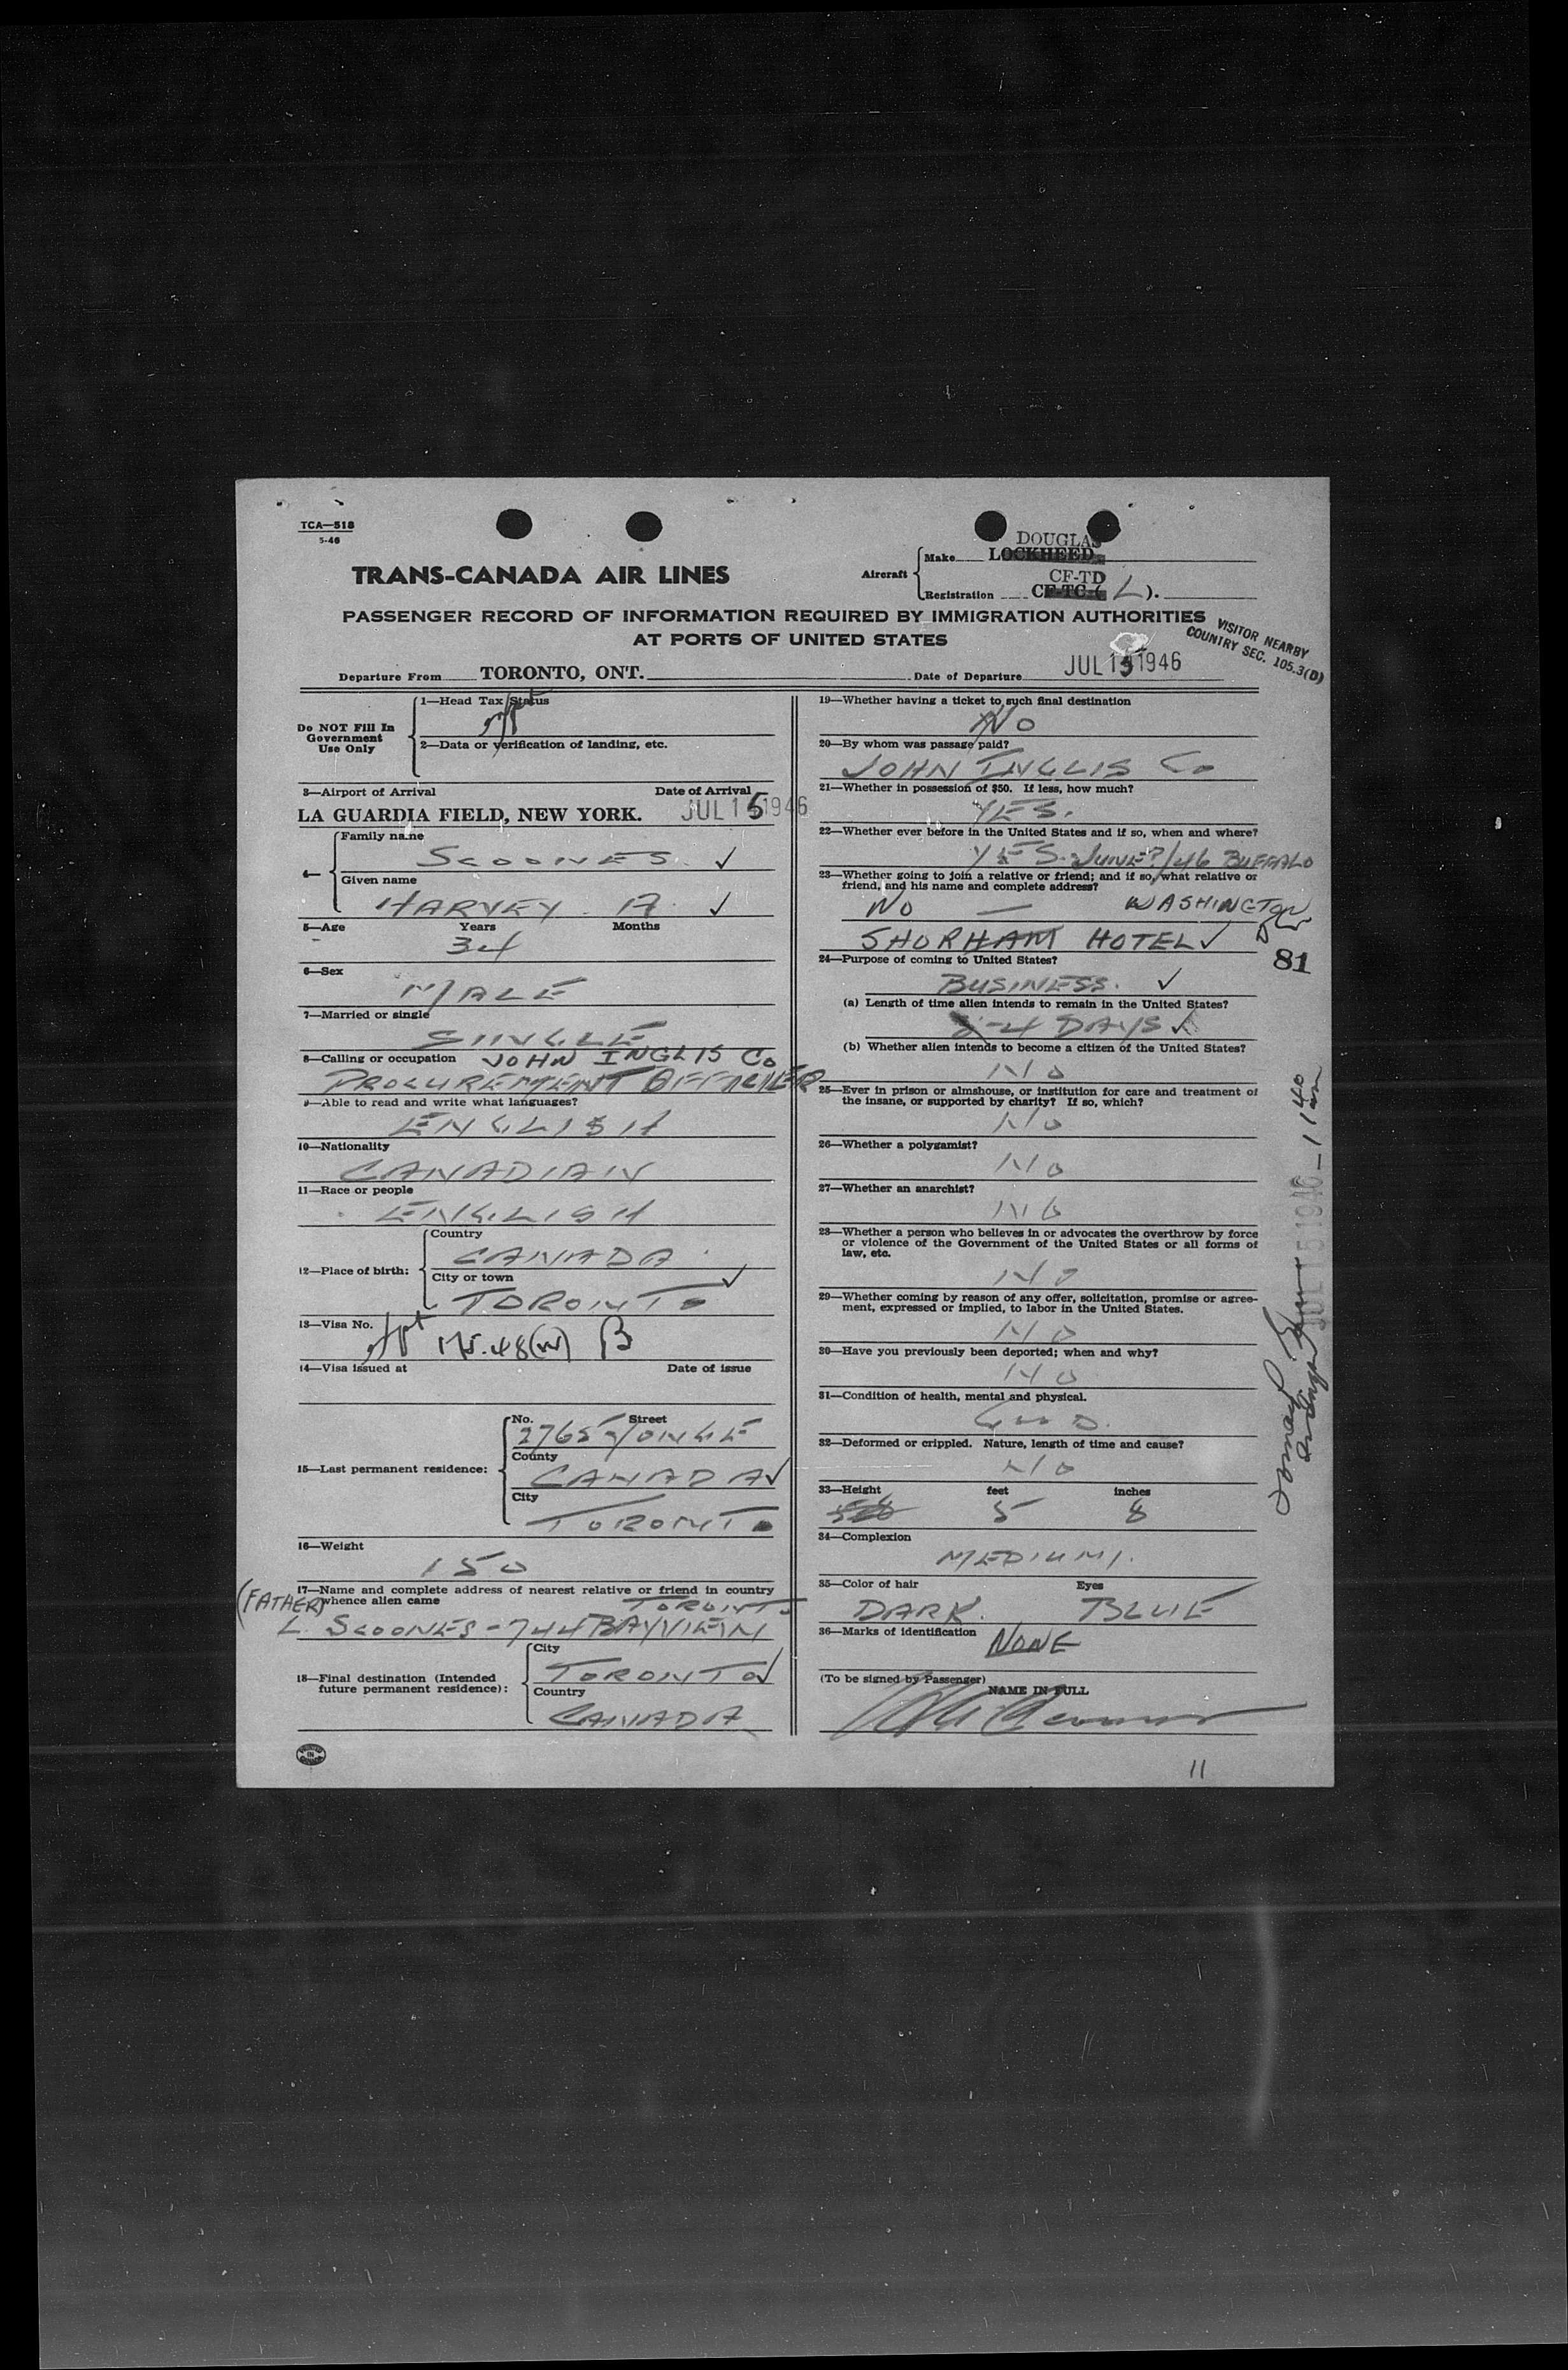 TCA—518
5-46
DOUGLAS
Make LOCKHEED
TRANS-CANADA AIR LINES
Aircraft
CF-TD
Registration CF-TC-( L ).
PASSENGER RECORD OF INFORMATION REQUIRED BY IMMIGRATION AUTHORITIES
AT PORTS OF UNITED STATES
VISITOR NEARBY
COUNTRY SEC. 105.3(D)
Departure From TORONTO, ONT. Date of Departure JUL 15 1946
Do NOT Fill In
Government
Use Only
1—Head Tax Status
2—Data or verification of landing, etc.
3—Airport of Arrival Date of Arrival
LA GUARDIA FIELD, NEW YORK. JUL 15 1946
4—
Family name
SCOONES ✓
Given name
HARVEY A. ✓
5—Age Years Months
34
6—Sex
MALE
7—Married or single
SINGLE
8—Calling or occupation JOHN INGLIS Co
PROCUREMENT OFFICIER
9—Able to read and write what languages?
ENGLISH
10—Nationality
CANADIAN
11—Race or people
ENGLISH
12—Place of birth:
Country
CANADA
City or town
TORONTO ✓
13—Visa No.
175.48(w) B
14—Visa issued at Date of issue
15—Last permanent residence:
No. Street
2765 YONGE
County
CANADA ✓
City
TORONTO
16—Weight
150
17—Name and complete address of nearest relative or friend in country
whence alien came
(FATHER) TORONTO
L. SCOONES - 744 BAYVIEW
18—Final destination (Intended
future permanent residence):
City
TORONTO ✓
Country
CANADA
19—Whether having a ticket to such final destination
NO
20—By whom was passage paid?
JOHN INGLIS Co
21—Whether in possession of $50. If less, how much?
YES.
22—Whether ever before in the United States and if so, when and where?
YES. JUNE?/46 BUFFALO
23—Whether going to join a relative or friend; and if so, what relative or
friend, and his name and complete address?
NO — WASHINGTON
DC
SHORHAM HOTEL ✓
81
24—Purpose of coming to United States?
BUSINESS. ✓
(a) Length of time alien intends to remain in the United States?
-4 DAYS ✓
(b) Whether alien intends to become a citizen of the United States?
NO
25—Ever in prison or almshouse, or institution for care and treatment of
the insane, or supported by charity? If so, which?
NO
26—Whether a polygamist?
NO
27—Whether an anarchist?
NO
28—Whether a person who believes in or advocates the overthrow by force
or violence of the Government of the United States or all forms of
law, etc.
NO
29—Whether coming by reason of any offer, solicitation, promise or agree-
ment, expressed or implied, to labor in the United States.
NO
30—Have you previously been deported; when and why?
NO
31—Condition of health, mental and physical.
GOOD.
32—Deformed or crippled. Nature, length of time and cause?
NO
33—Height feet inches
5 8
34—Complexion
MEDIUM.
35—Color of hair Eyes
DARK. BLUE
36—Marks of identification NONE
(To be signed by Passenger)
NAME IN FULL
JUL 15 1946
11